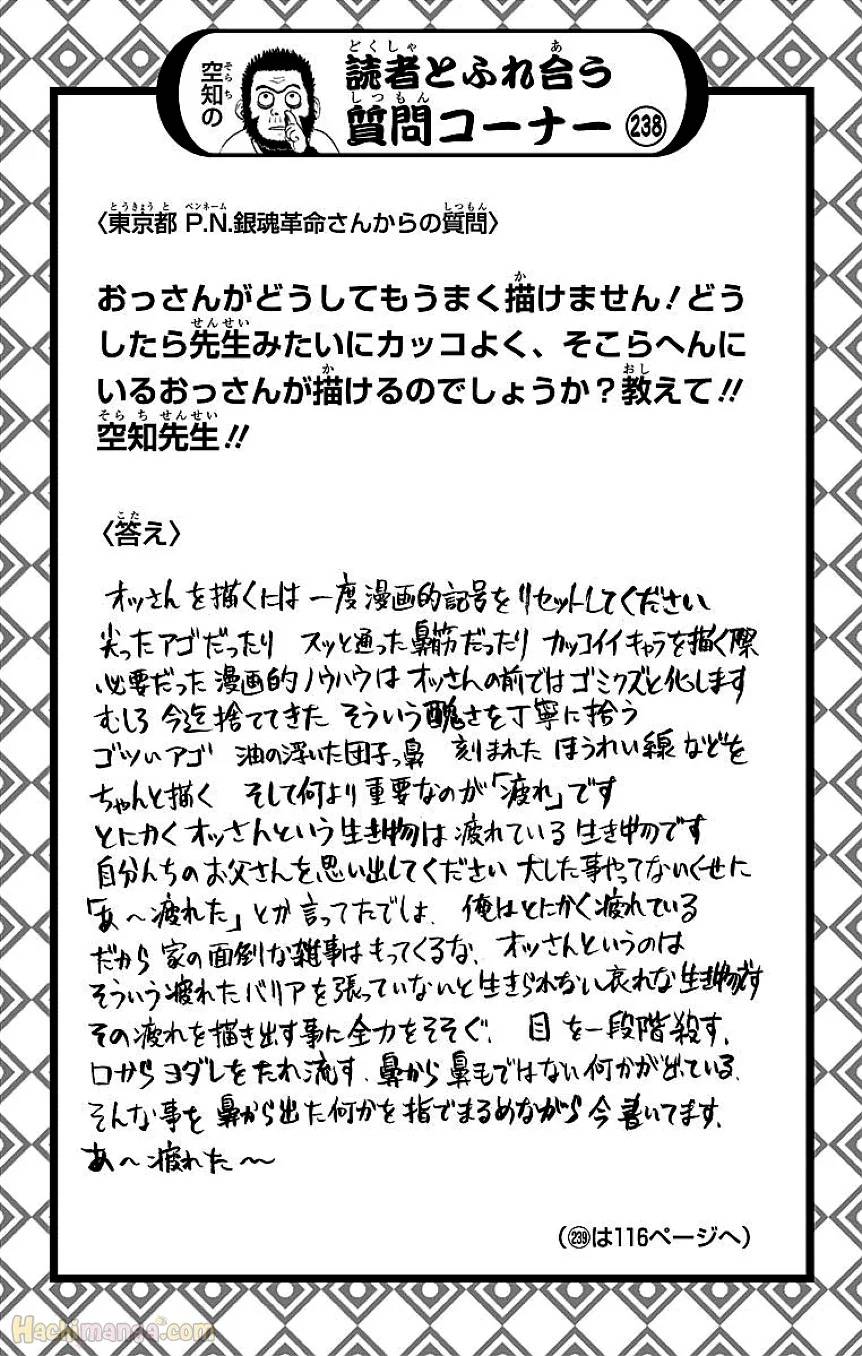 空知の
読者とふれ合う
質問コーナー㉘
〈東京都 P.N.銀魂革命さんからの質問〉
おっさんがどうしてもうまく描けません!どう
したら先生みたいにカッコよく、そこらへんに
いるおっさんが描けるのでしょうか?教えて!!
空知先生!!
〈答え〉
オッさんを描くには一度漫画的記号をリセットしてください
尖ったアゴだったり スッと通った鼻筋だったり カッコイイキャラを描く際
必要だった漫画的ノウハウはオッさんの前ではゴミクズと化します
むしろ今迄捨ててきた そういう醜さを丁寧に拾う
ゴツいアゴ 油の浮いた団子っ鼻 刻まれた ほうれい線などを
ちゃんと描く そして何より重要なのが「疲れ」です
とにかくオッさんという生き物は疲れている生き物です
自分んちのお父さんを思い出してください 大した事やってないくせに
「あ〜疲れた」とか言ってたでしょ、俺はとにかく疲れている
だから家の面倒な雑事はもってくるな、オッさんというのは
そういう疲れたバリアを張っていないと生きられない哀れな生き物です
その疲れを描き出す事に全力をそそぐ、目を一段階殺す、
口からヨダレをたれ流す、鼻から鼻毛ではない何かが出ている、
そんな事を鼻から出た何かを指でまるめながら今書いてます、
あ〜疲れた〜
(239は116ページへ)
Hachimanga.com